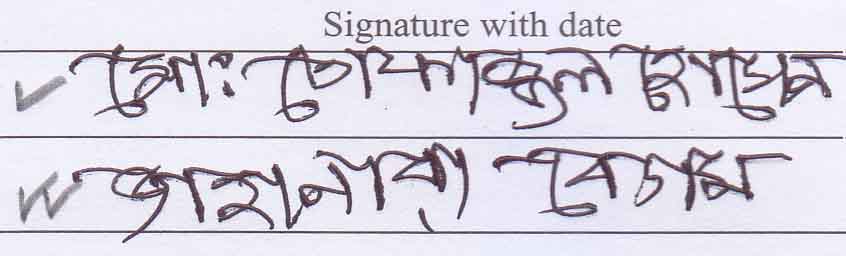 Signature with date
মোঃ তোফাজ্জুল হোসেন
জাহানারা বেগম